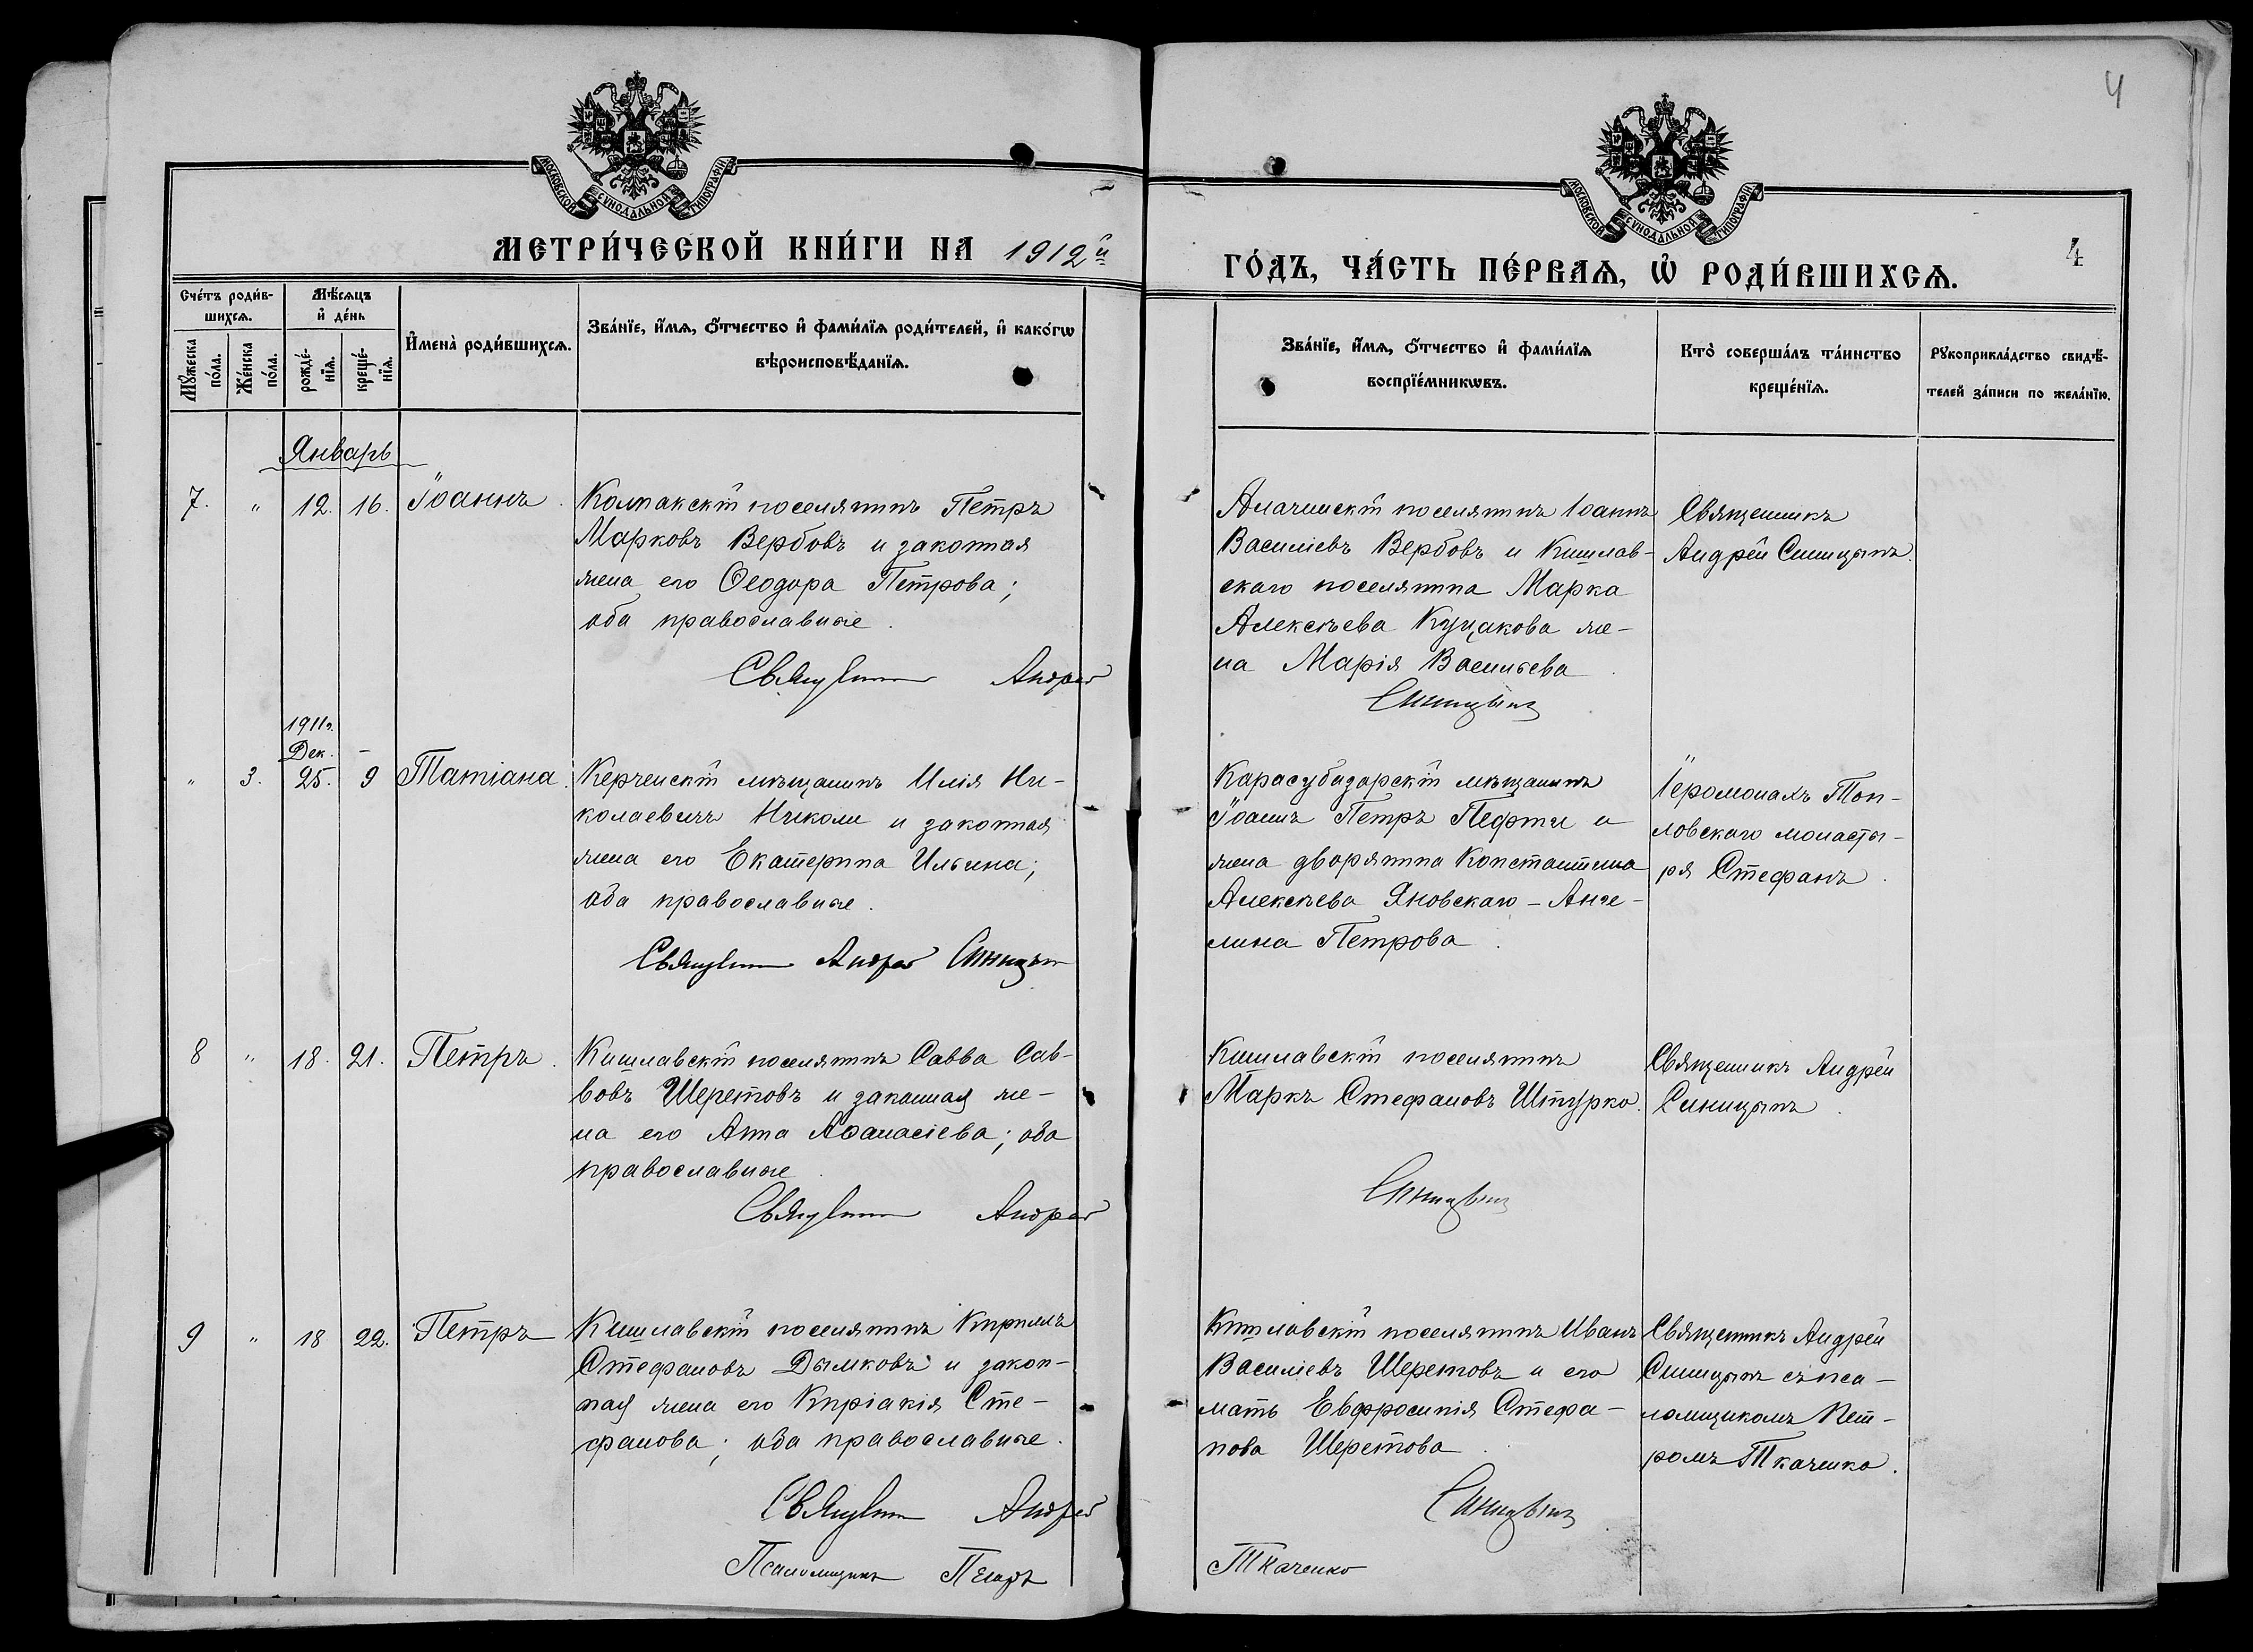 4
МОСКОВСКОЙ СѴНОДАЛЬНОЙ ТИПОГРАФІИ
МОСКОВСКОЙ СѴНОДАЛЬНОЙ ТИПОГРАФІИ
МЕТРИ́ЧЕСКОЙ КНИ́ГИ НА 1912й
ГО́ДЪ, ЧА́СТЬ ПЕ́РВАѦ, Ѡ҆ РОДИ́ВШИХСѦ.
4
Сче́тъ роди́в-
шихсѧ.
Мꙋ́жеска
по́ла.
Же́нска
по́ла.
Мѣ́сѧцъ
и҆ де́нь
рожде́-
нїѧ.
креще́-
нїѧ.
И҆мена̀ роди́вшихсѧ.
Зва́нїе, и҆́мѧ, ѻ҆́тчество и҆ фами́лїѧ роди́телей, и҆ како́гѡ
вѣроисповѣ́данїѧ.
Зва́нїе, и҆́мѧ, ѻ҆́тчество и҆ фами́лїѧ
воспрїе́мникѡвъ.
Кто̀ соверша́лъ та́инство
креще́нїѧ.
Рꙋкоприкла́дство свидѣ́-
телей за́писи по жела́нїю.
Январь
7. " 12. 16. Іоаннъ.
Колпакскій поселянинъ Петръ
Марковъ Вербовъ и законная
жена его Ѳеодора Петрова;
оба православные.
Священникъ Андрей
Алачинскій поселянинъ Іоаннъ
Василіевъ Вербовъ и Кишлав-
скаго поселянина Марка
Алексѣева Куцакова же-
на Марія Васильева.
Синицынъ
Священникъ
Андрей Синицынъ.
1911г.
Дек. -
" 3. 25. 9 Татіана.
Керченскій мѣщанинъ Илія Ни-
колаевичъ Николи и законная
жена его Екатерина Ильина;
оба православные.
Священникъ Андрей Синицын
Карасубазарскій мѣщанинъ
Іоаннъ Петръ Пефти и
жена дворянина Константина
Алексѣева Яновскаго - Анге-
лина Петрова.
Іеромонахъ Топ-
ловскаго монасты-
ря Стефанъ.
8 " 18. 21. Петръ.
Кишлавскій поселянинъ Савва Сав-
вовъ Шеретовъ и законная же-
на его Анна Аѳанасіева; оба
православные.
Священникъ Андрей
Кишлавскій поселянинъ
Маркъ Стефановъ Штурко.
Синицынъ
Священникъ Андрей
Синицынъ.
9 " 18 22. Петръ
Кишлавскій поселянинъ Кириллъ
Стефановъ Дымковъ и закон-
ная жена его Киріакія Сте-
фанова; оба православные.
Священникъ Андрей
Псаломщикъ Петръ
Кишлавскій поселянинъ Иванъ
Василіевъ Шеретовъ и его
мать Евфросинія Стефа-
нова Шеретова.
Синицынъ
Ткаченко
Священникъ Андрей
Синицынъ съ пса-
ломщикомъ Пет-
ромъ Ткаченко.